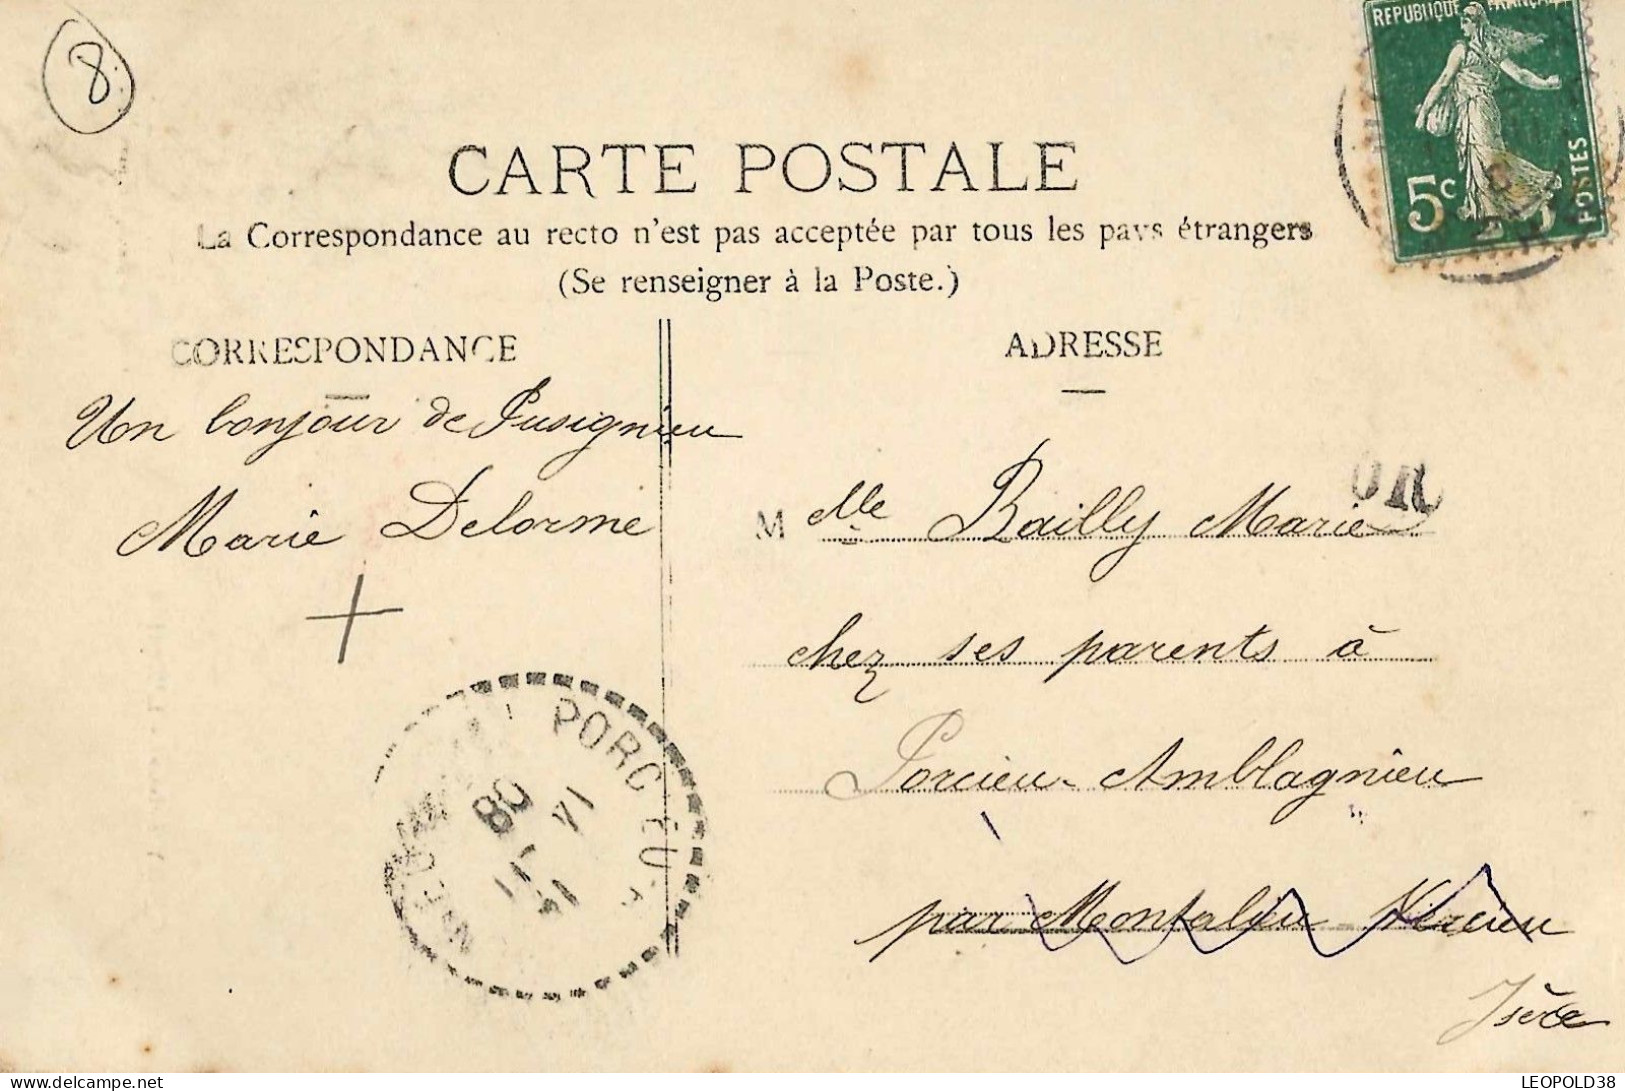 8
REPUBLIQUE FRANÇAISE
5c
POSTES
CARTE POSTALE
La Correspondance au recto n'est pas acceptée par tous les pays étrangers
(Se renseigner à la Poste.)
CORRESPONDANCE
Un bonjour de Pusignieu
Marie Delorme
ADRESSE
OR
M elle Bailly Marie
chez ses parents à
Porcieu-Amblagnieu
par Montalieu-Vercieu
Isère
PORCIEU
08
delcampe.net
LEOPOLD38